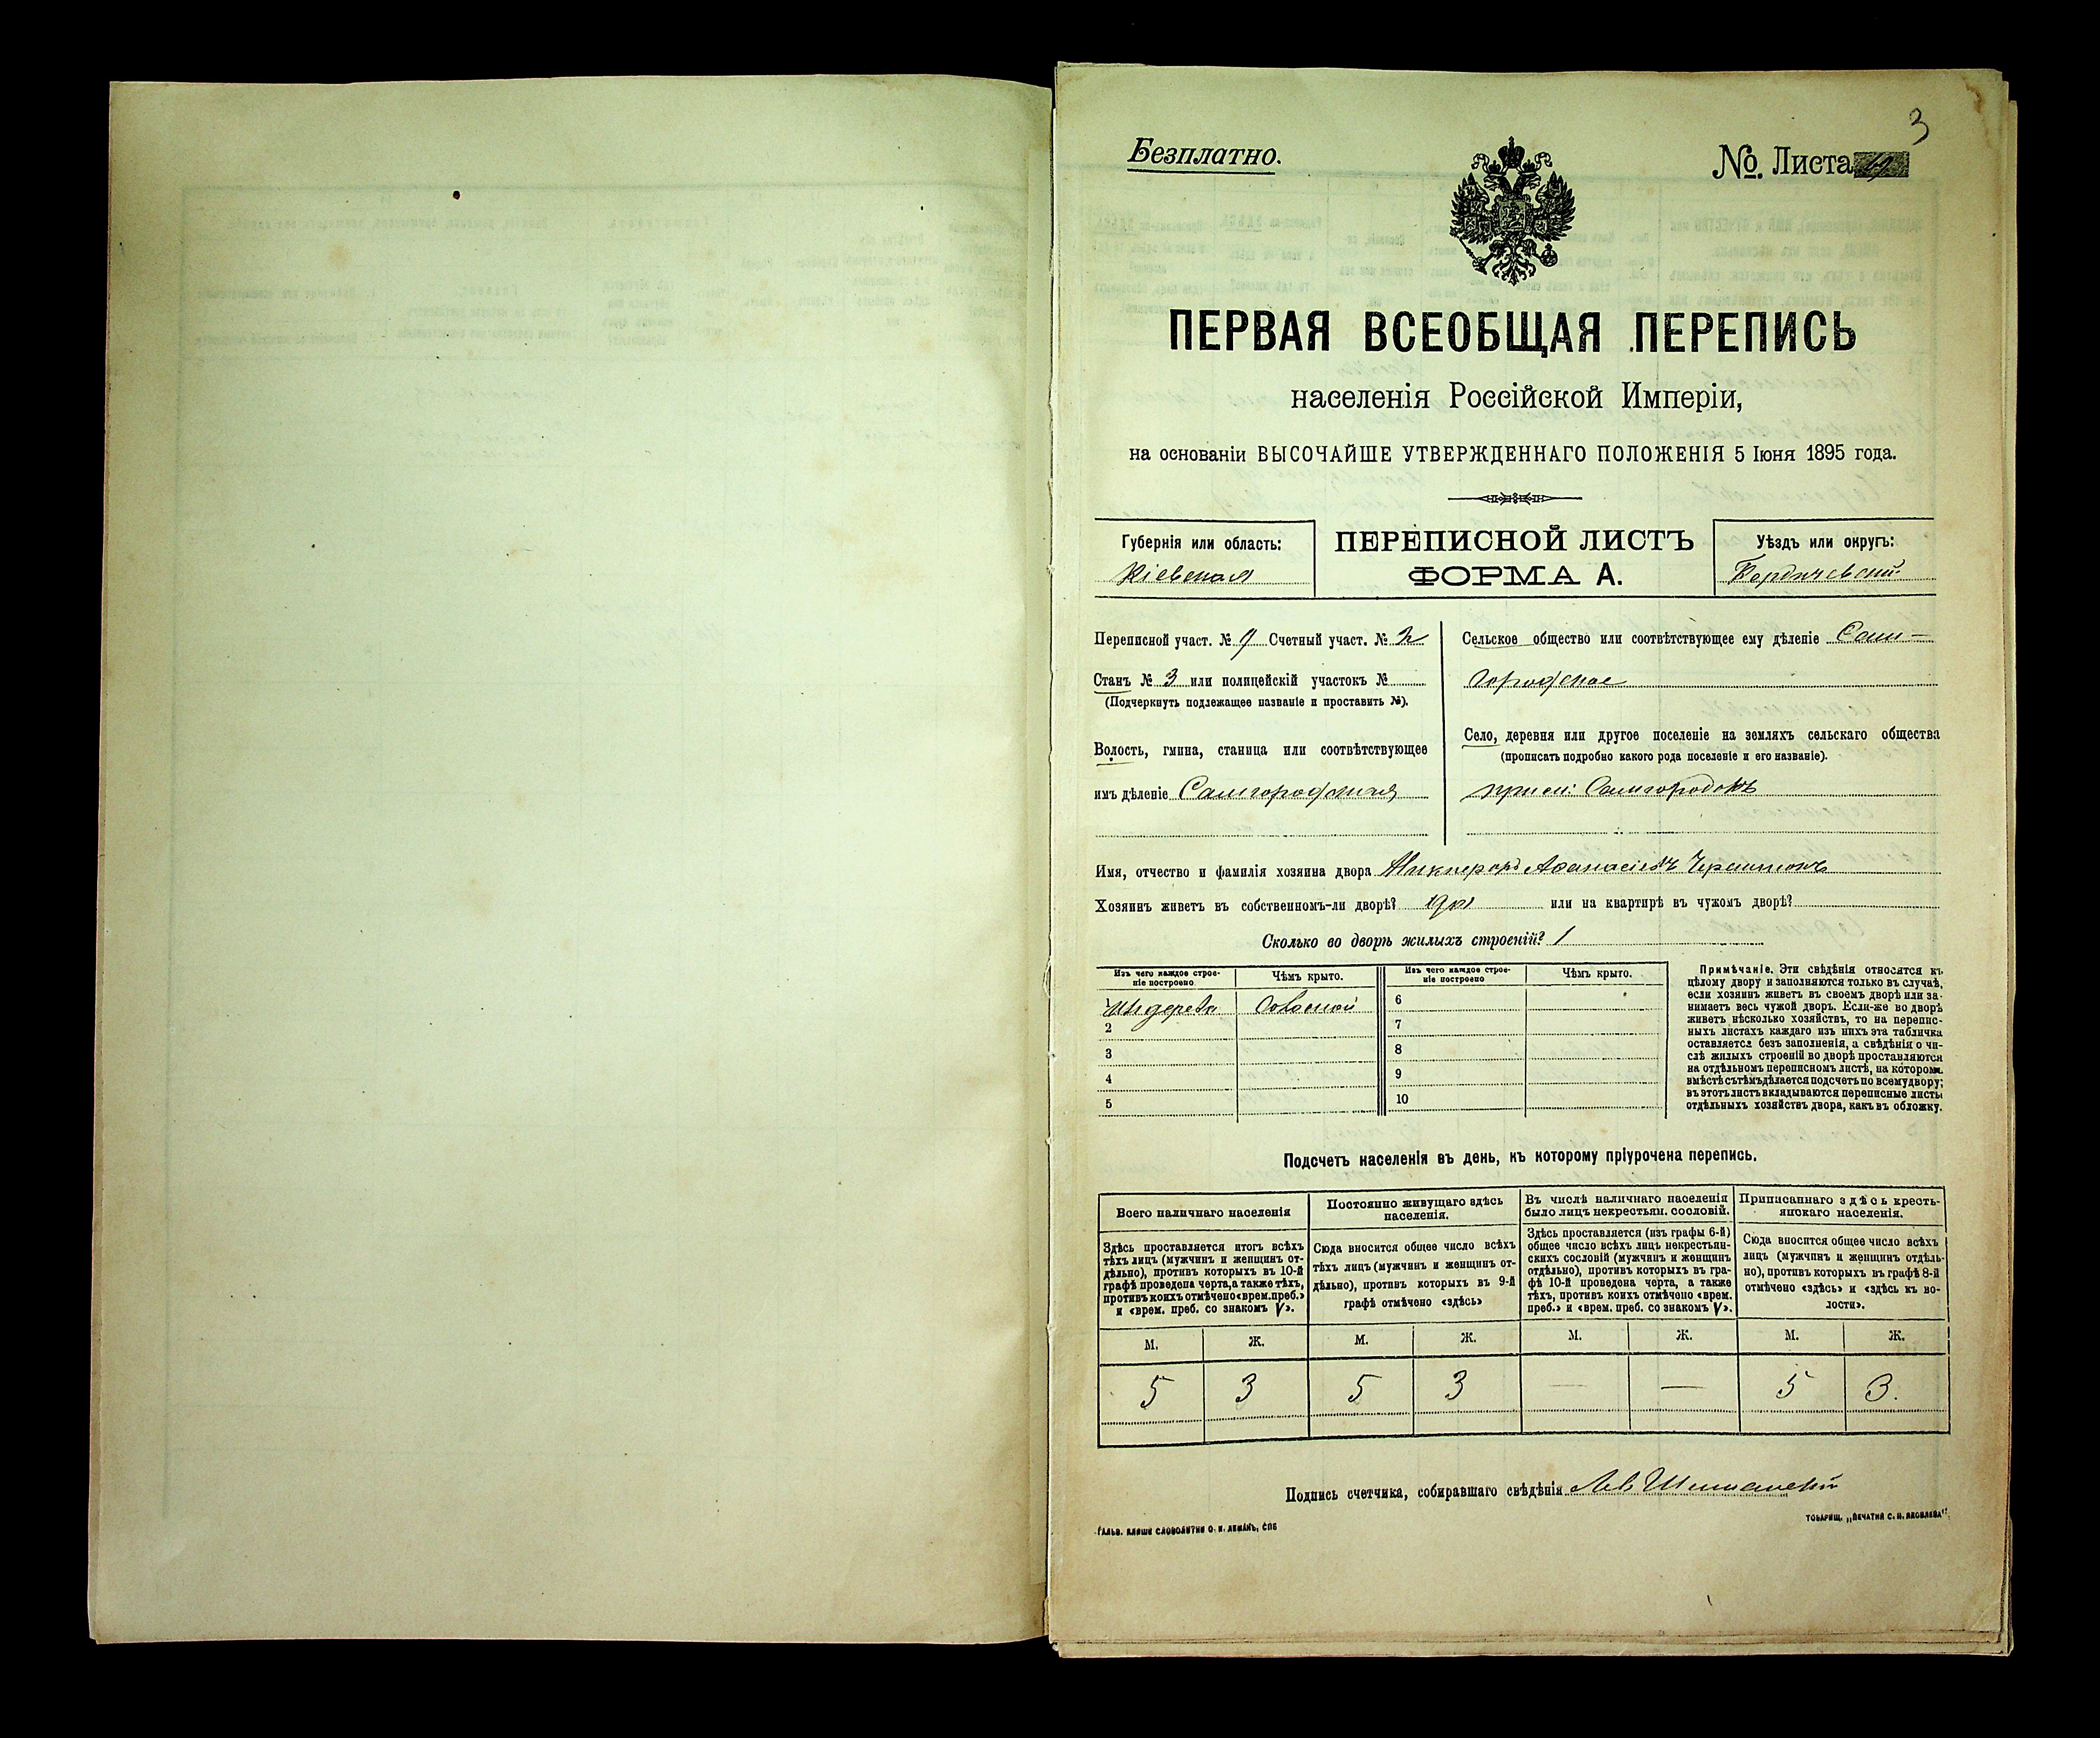 3
Безплатно.
№. Листа
ПЕРВАЯ ВСЕОБЩАЯ ПЕРЕПИСЬ
населенія Россійской Имперіи,
на основаніи ВЫСОЧАЙШЕ УТВЕРЖДЕННАГО ПОЛОЖЕНІЯ 5 Іюня 1895 года.
Губернія или область:
Кіевская
ПЕРЕПИСНОЙ ЛИСТЪ
ФОРМА А.
Уѣздъ или округъ:
Бердичевскій
Переписной участ. № 9 Счетный участ. № 2
Станъ № 3 или полицейскій участокъ №
(Подчеркнуть подлежащее названіе и проставить №).
Волость, гмина, станица или соотвѣтствующее
имъ дѣленіе Самгородская
Сельское общество или соотвѣтствующее ему дѣленіе Сам-
городское
Село, деревня или другое поселеніе на земляхъ сельскаго общества
(прописать подробно какого рода поселеніе и его названіе).
Самгородокъ
Имя, отчество и фамилія хозяина двора Никифоръ Афанасіевъ
Хозяинъ живетъ въ собственномъ-ли дворѣ? или на квартирѣ въ чужомъ дворѣ?
Сколько во дворѣ жилыхъ строеній? 1
Изъ чего каждое строе-
ніе построено
Чѣмъ крыто.
Изъ чего каждое строе-
ніе построено
Чѣмъ крыто.
1 Изъ дерева Соломой
2
3
4
5
6
7
8
9
10
Примѣчаніе. Эти свѣдѣнія относятся къ
цѣлому двору и заполняются только въ случаѣ,
если хозяинъ живетъ въ своемъ дворѣ или за-
нимаетъ весь чужой дворъ. Если-же во дворѣ
живетъ нѣсколько хозяйствъ, то на перепись-
ныхъ листахъ каждаго изъ нихъ эта табличка
оставляется безъ заполненія, а свѣдѣнія о чи-
слѣ жилыхъ строеній во дворѣ проставляются
на отдѣльномъ переписномъ листѣ, на котором
вмѣстѣ съ тѣмъ дѣлается подсчетъ по всему двору;
въ этотъ листъ вкладываются переписные листы
отдѣльныхъ хозяйствъ двора, какъ въ обложку.
Подсчетъ населенія въ день, къ которому пріурочена перепись.
Всего наличнаго населенія
Здѣсь проставляется итогъ всѣхъ
тѣхъ лицъ (мужчинъ и женщинъ от-
дѣльно), противъ которыхъ въ 10-й
графѣ проведена черта, а также тѣхъ,
противъ коихъ отмѣчено «врем. преб.»
и «врем. преб. со знакомъ V».
Постоянно живущаго здѣсь
населенія.
Сюда вносится общее число всѣхъ
тѣхъ лицъ (мужчинъ и женщинъ от-
дѣльно), противъ которыхъ въ 9-й
графѣ отмѣчено «здѣсь»
Въ числѣ наличнаго населенія
было лицъ некрестьян. сословій.
Здѣсь проставляется (изъ графы 6-й)
общее число всѣхъ лицъ некрестьян-
скихъ сословій (мужчинъ и женщинъ
отдѣльно), противъ которыхъ въ гра-
фѣ 10-й проведена черта, а также
тѣхъ, противъ коихъ отмѣчено «врем.
преб.» и «врем. преб. со знакомъ V».
Приписаннаго здѣсь кресть-
янскаго населенія.
Сюда вносится общее число всѣхъ
лицъ (мужчинъ и женщинъ отдѣль-
но), противъ которыхъ въ графѣ 8-й
отмѣчено «здѣсь» и «здѣсь къ во-
лости».
М. Ж. М. Ж. М. Ж. М. Ж.
5 3 5 3 — — 5 3.
Подпись счетчика, собиравшаго свѣдѣнія
ГАЛЬВ. КЛИШЕ СЛОВОЛИТНИ О. И. ЛЕМАНЪ, СПБ
ТОВАРИЩ. „ПЕЧАТНЯ С. П. ЯКОВЛЕВА"